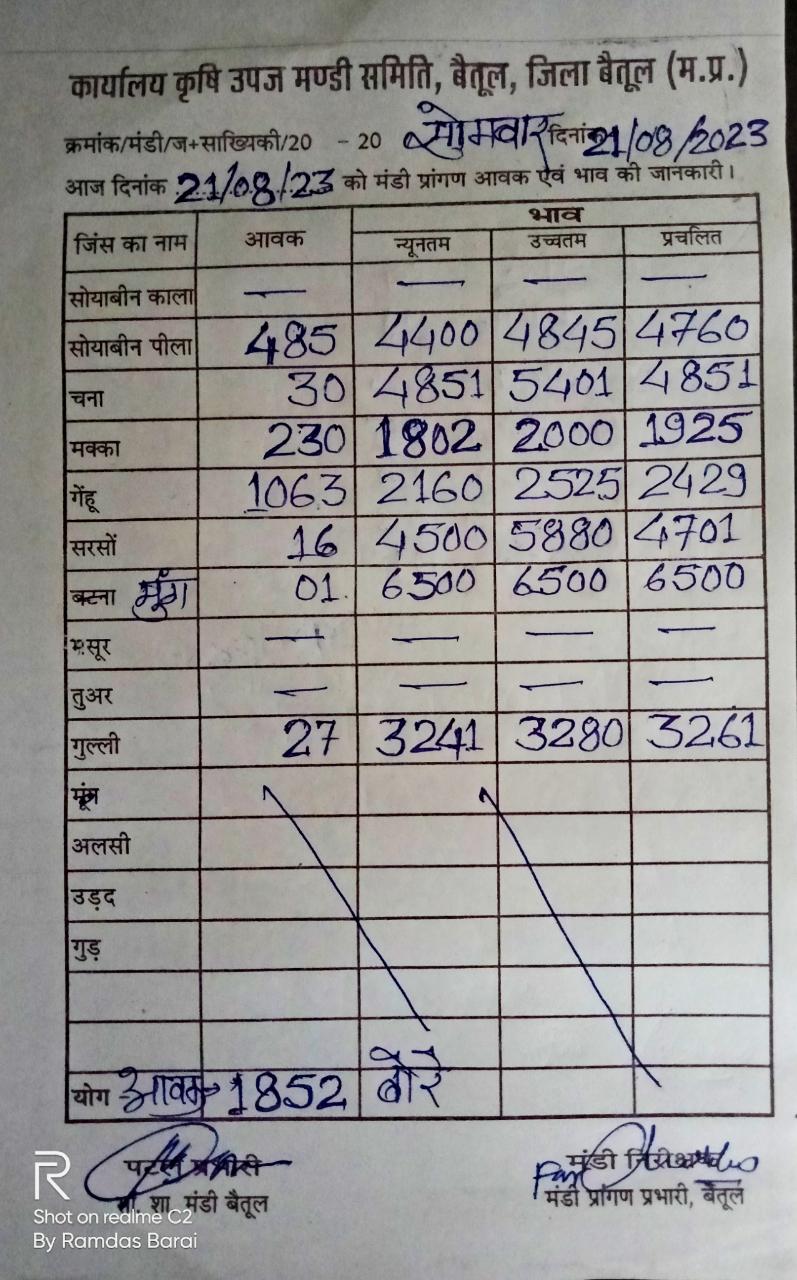 कार्यालय कृषि उपज मण्डी समिति, बैतूल, जिला बैतूल (म.प्र.)
क्रमांक/मंडी/ज+साख्यिकी/20 - 20 सोमवार दिनांक 21/08/2023
आज दिनांक 21/08/23 को मंडी प्रांगण आवक एवं भाव की जानकारी।
जिंस का नाम आवक भाव
न्यूनतम उच्चतम प्रचलित
सोयाबीन काला — — — —
सोयाबीन पीला 485 4400 4845 4760
चना 30 4851 5401 4851
मक्का 230 1802 2000 1925
गेंहू 1063 2160 2525 2429
सरसों 16 4500 5880 4701
बटना मूंग 01 6500 6500 6500
मसूर — — — —
तुअर — — — —
गुल्ली 27 3241 3280 3261
मूंग
अलसी
उड़द
गुड़
योग आवक→ 1852 बोरे
मंडी
शा. मंडी बैतूल
For
मंडी प्रांगण प्रभारी, बैतूल
R
Shot on realme C2
By Ramdas Barai